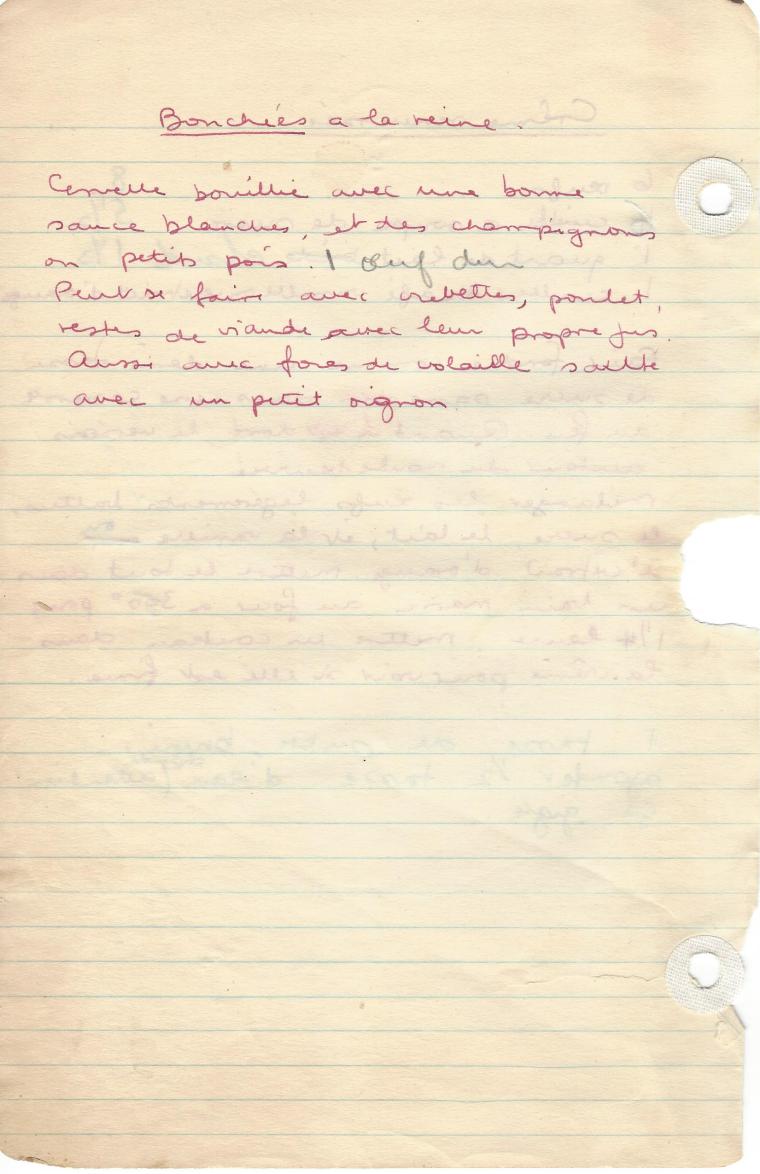 Bouchées a la reine.
Cervelle bouillie avec une bonne
sauce blanches, et des champignons
ou petits pois. 1 œuf dur
Peut se faire avec crevettes, poulet,
restes de viande avec leur propre jus.
Aussi avec foies de volaille sauté
avec un petit oignon